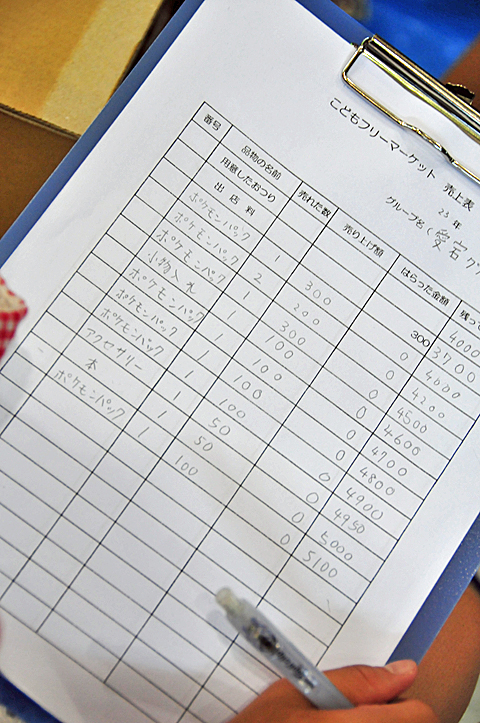 こどもフリーマーケット 売上表
23 年
グループ名 (愛宕グ
番号 品物の名前 売れた数 売り上げ額 はらった金額 残って
用意したおつり 4000
出店料 300 3700
ポケモンパック 1 300 0 4000
ポケモンパック 2 200 0 4200
ポケモンパック 1 300 0 4500
小物入れ 1 100 0 4600
ポケモンパック 1 100 0 4700
ポケモンパック 1 100 0 4800
ポケモンパック 1 100 0 4900
アクセサリー 1 50 0 4950
本 1 50 0 5000
ポケモンパック 1 100 0 5100